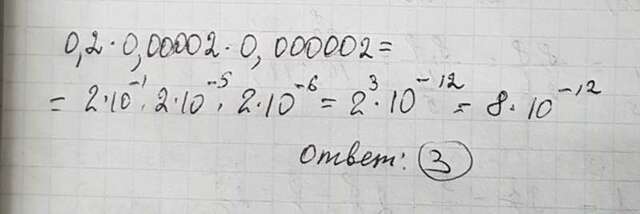 0,2·0,00002·0,000002=
= 2·10⁻¹·2·10⁻⁵·2·10⁻⁶ = 2³·10⁻¹² = 8·10⁻¹²
Ответ: 3